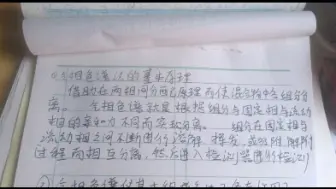 气相色谱仪的基本原理
借助在两相间分配原理而使混合物中各组分分
离。 气相色谱就是根据组分与固定相与流动
相的亲和力不同而实现分离。 组分在固定相与
流动相之间不断进行溶解、挥发，或吸附、解附
过程而相互分离，然后进入检测器进行检测